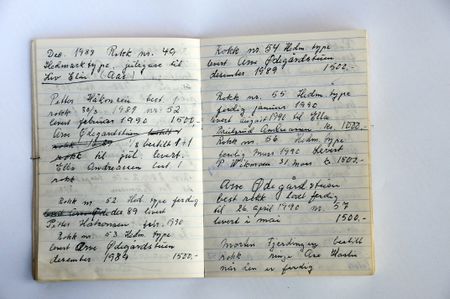 Des. 1989 Rokk nr. 49
Hedmark type, julegave til
Liv Elin (Aas)
Petter Håkonsen best.
rokk 1989 nr. 52
levert februar 1990 1500,-
Arne Ødegårdstuen
rokk til jul levert.
Ella Andreassen best. 1
rokk
Rokk nr. 52 Hed. type ferdig
des 89 levert
Petter Håkonsen febr. 1990
Rokk nr. 53 Hedm. type
levert Arne Ødegårdstuen
desember 1989 1500,-
Rokk nr. 54 Hedm. type
levert Arne Ødegårdstuen
desember 1989 1500,-
Rokk nr. 55 Hedm. type
ferdig januar 1990
levert august 1990 til Ella
Andreassen kr. 1000,-
Rokk nr. 56 Hedm. type
ferdig Mars 1990 Levert
P Wikmoen 31 mars k. 1500,-
Arne Ødegårdstuen
best rokk lovet ferdig
til 26 april 1990 nr. 57
levert i mai 1500,-
Morten Gjerdingen bestilt
rokk ringe Are
når den er ferdig